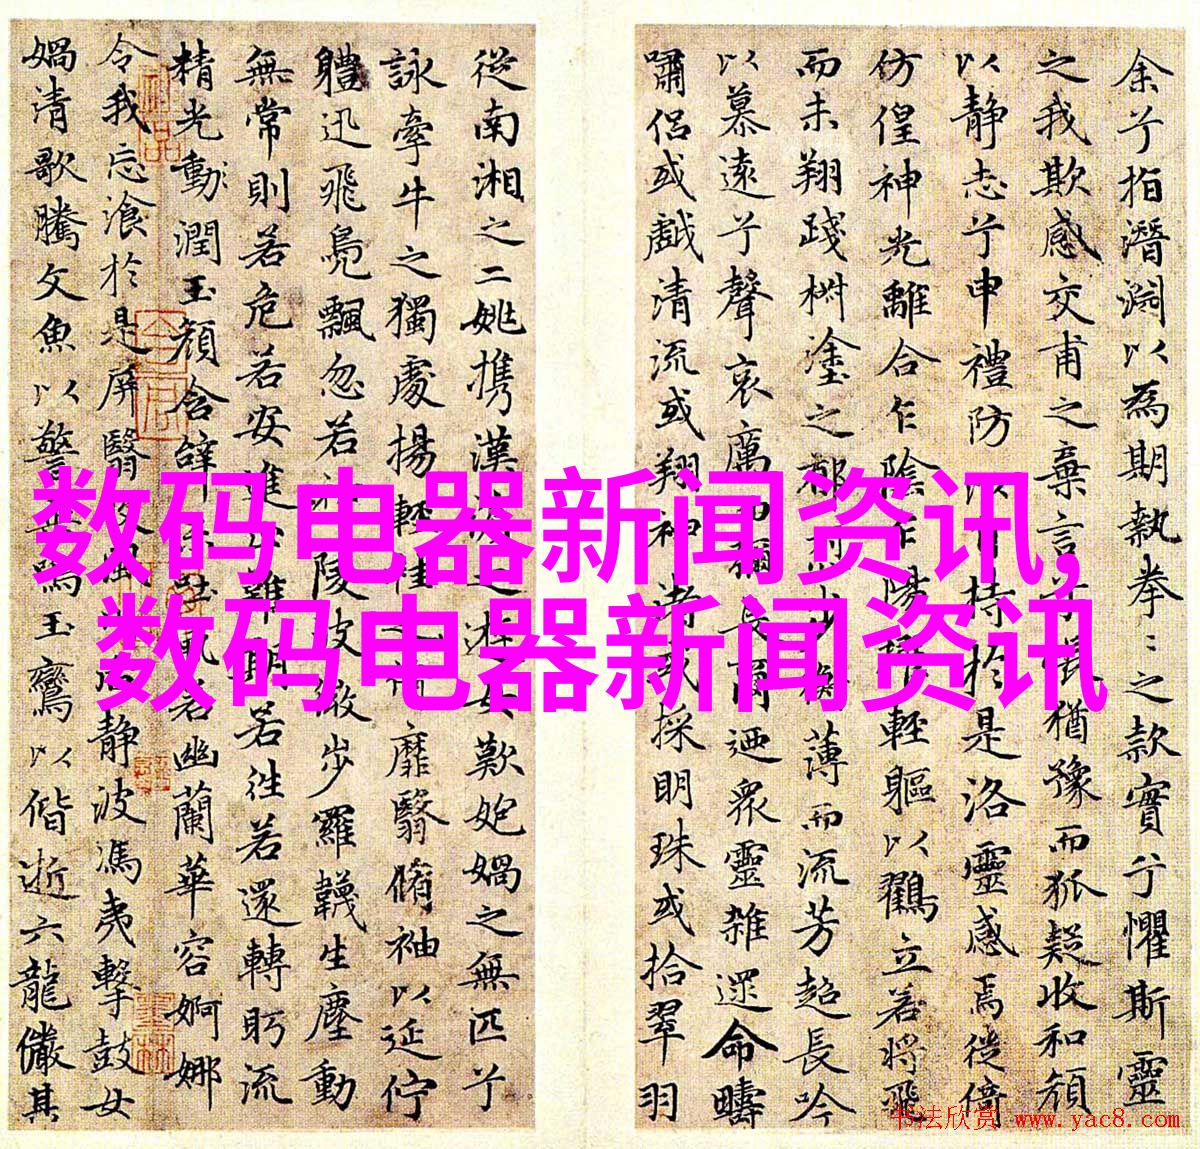 余兮指潛淵以為期執拳〻之款實兮懼斯靈
之我欺感交甫之棄言兮悵猶豫而狐疑收和顏
以靜志兮申禮防持於是洛靈感焉徙倚
仿偟神光離合乍陰乍陽輕軀以鶴立若將飛
而未翔踐椒塗之郁步蘅薄而流芳超長吟
以慕遠兮聲哀厲而彌長爾迺眾靈雜遝命疇
嘯侶或戲清流或翔神渚或採明珠或拾翠羽
從南湘之二姚攜漢濱之游女歎匏媧之無匹兮
詠牽牛之獨處揚輕袿之猗靡翳脩袖以延佇
體迅飛鳧飄忽若神陵波微步羅韈生塵動
無常則若危若安進止難期若往若還轉眄流
精光動潤玉顏含辭未吐氣若幽蘭華容婀娜
令我忘湌於是屏翳收風后靜波馮夷擊鼓女
媧清歌騰文魚以警乘鳴玉鸞以偕逝六龍儼其
数码电器新闻资讯,
数码电器新闻资讯
书法欣赏 www.yac8.com